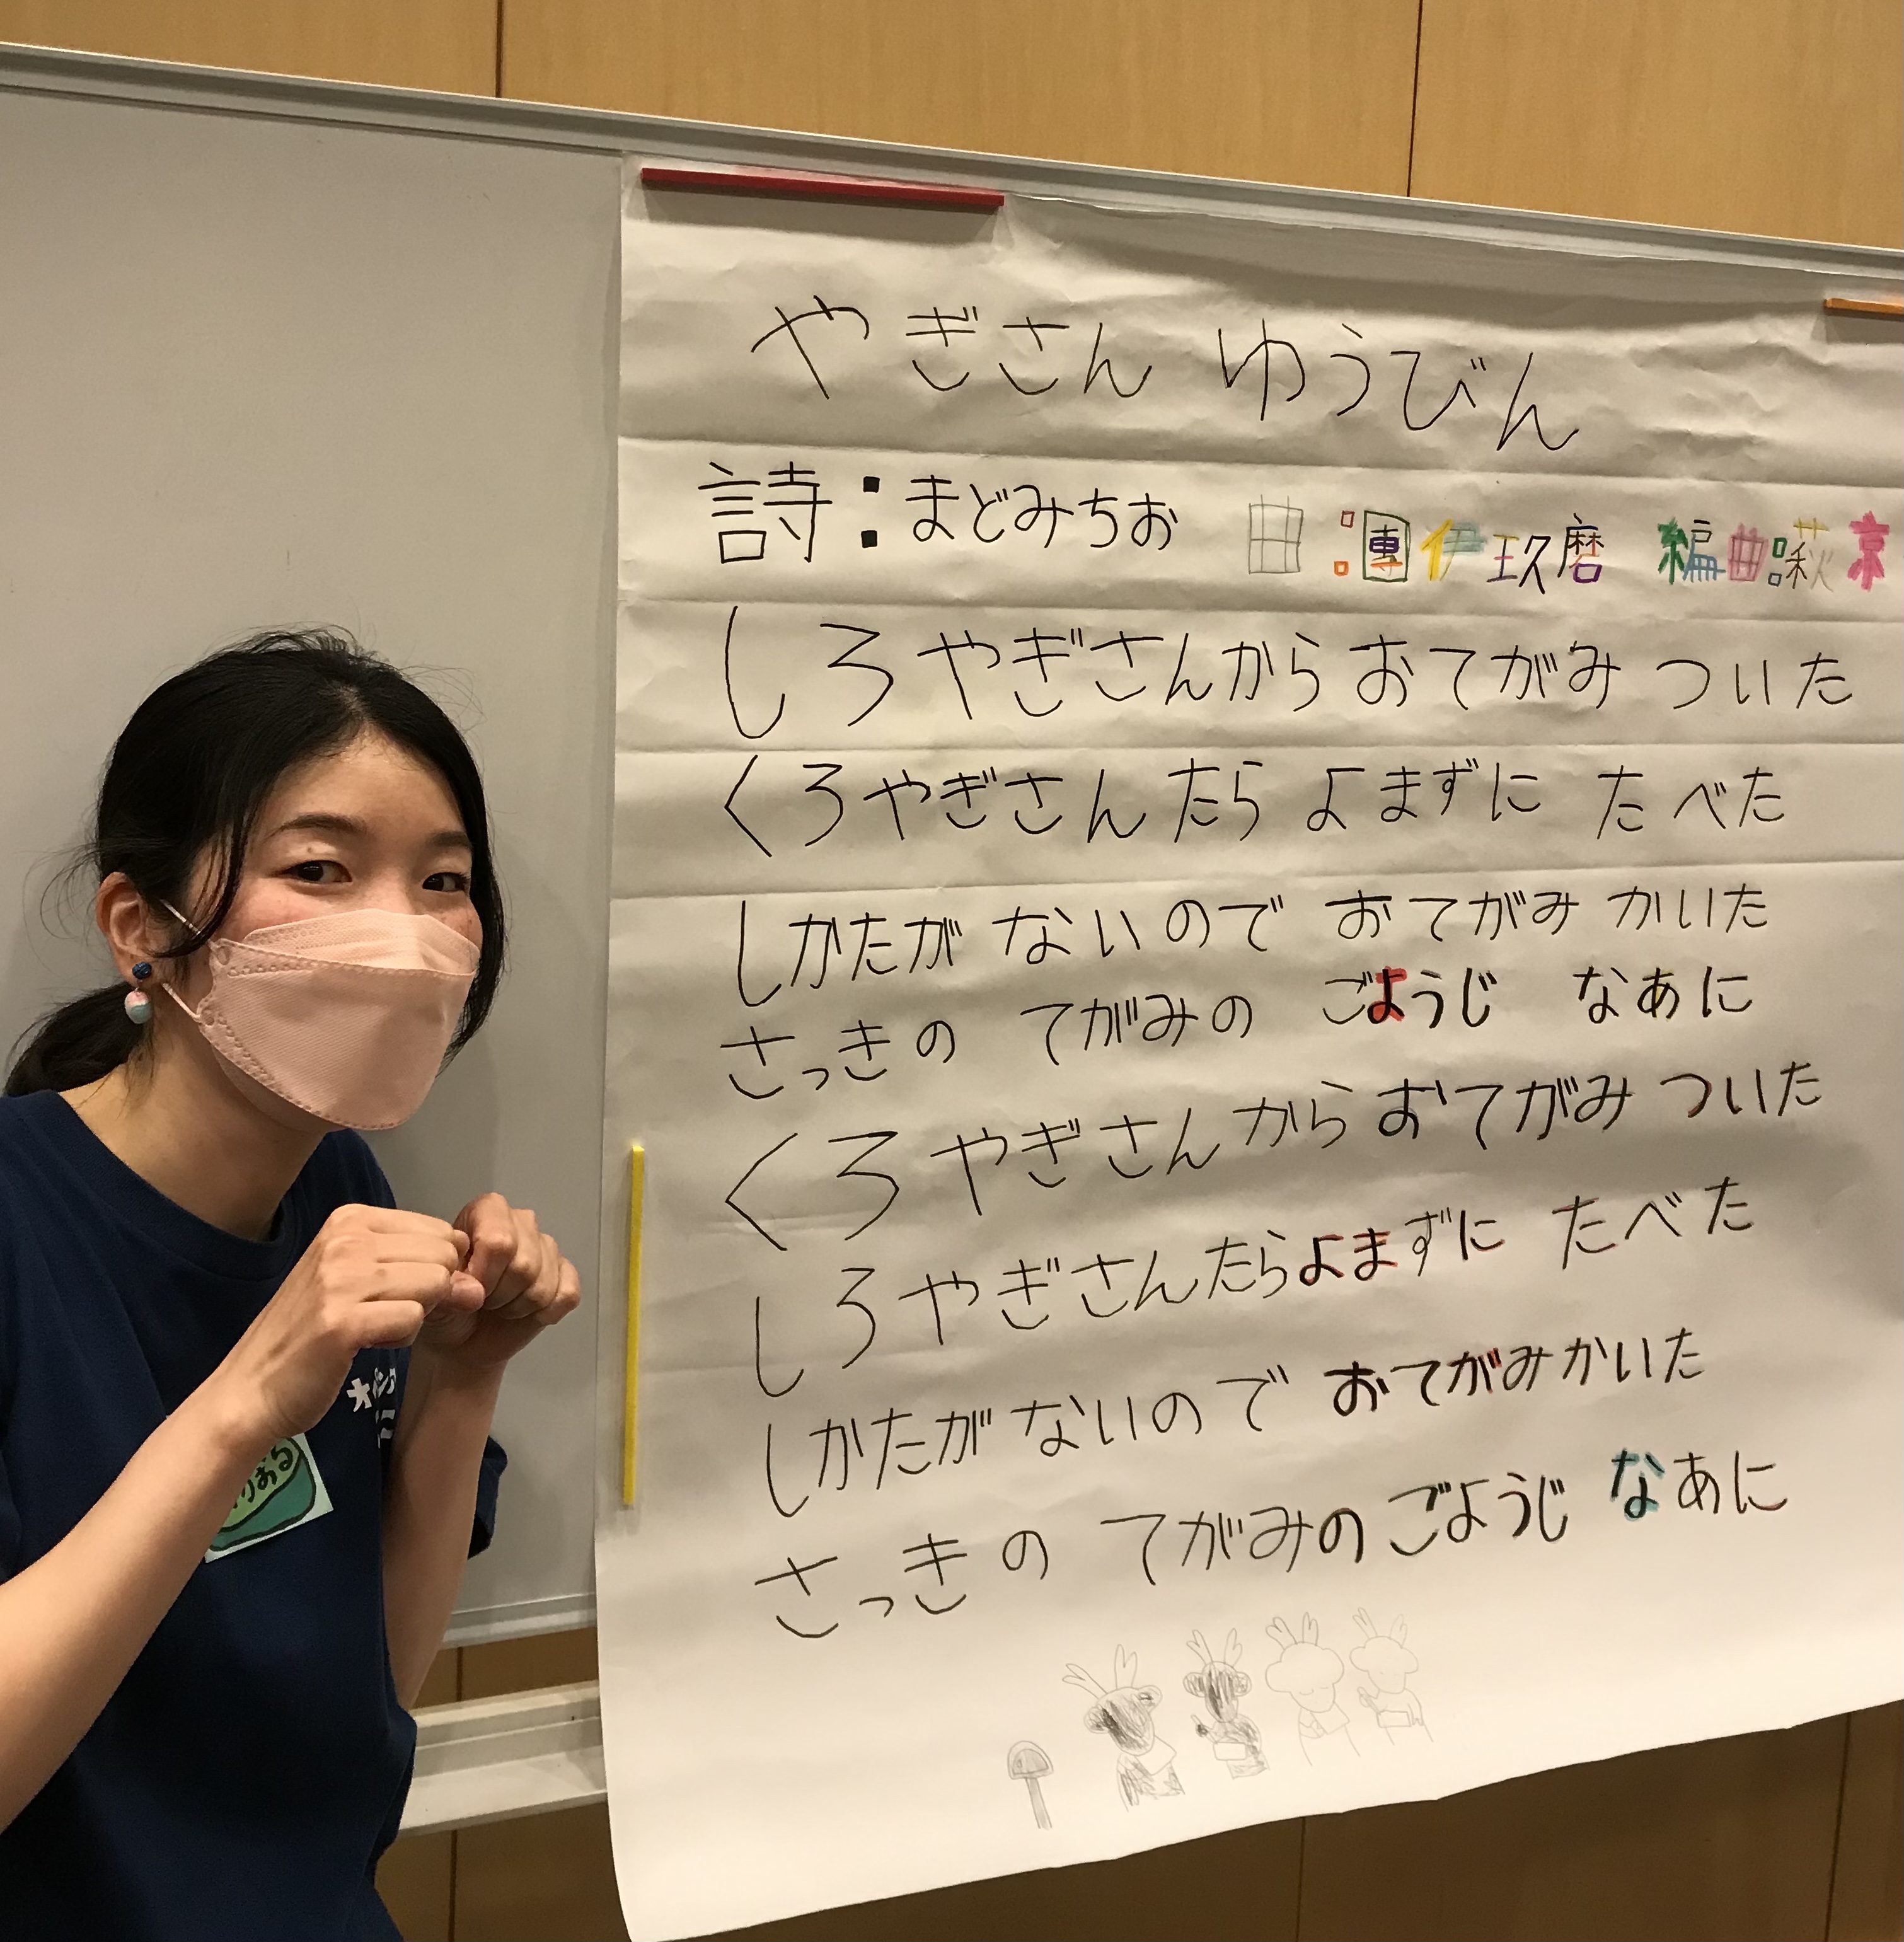 やぎさん ゆうびん
詩:まどみちお 曲:團伊玖磨 編曲:萩京
しろやぎさんから おてがみ ついた
くろやぎさんたら よまずに たべた
しかたが ないので おてがみ かいた
さっきの てがみの ごようじ なあに
くろ やぎさんから おてがみ ついた
しろ やぎさんたら よまずに たべた
しかたが ないので おてがみかいた
さっきの てがみの ごようじ なあに